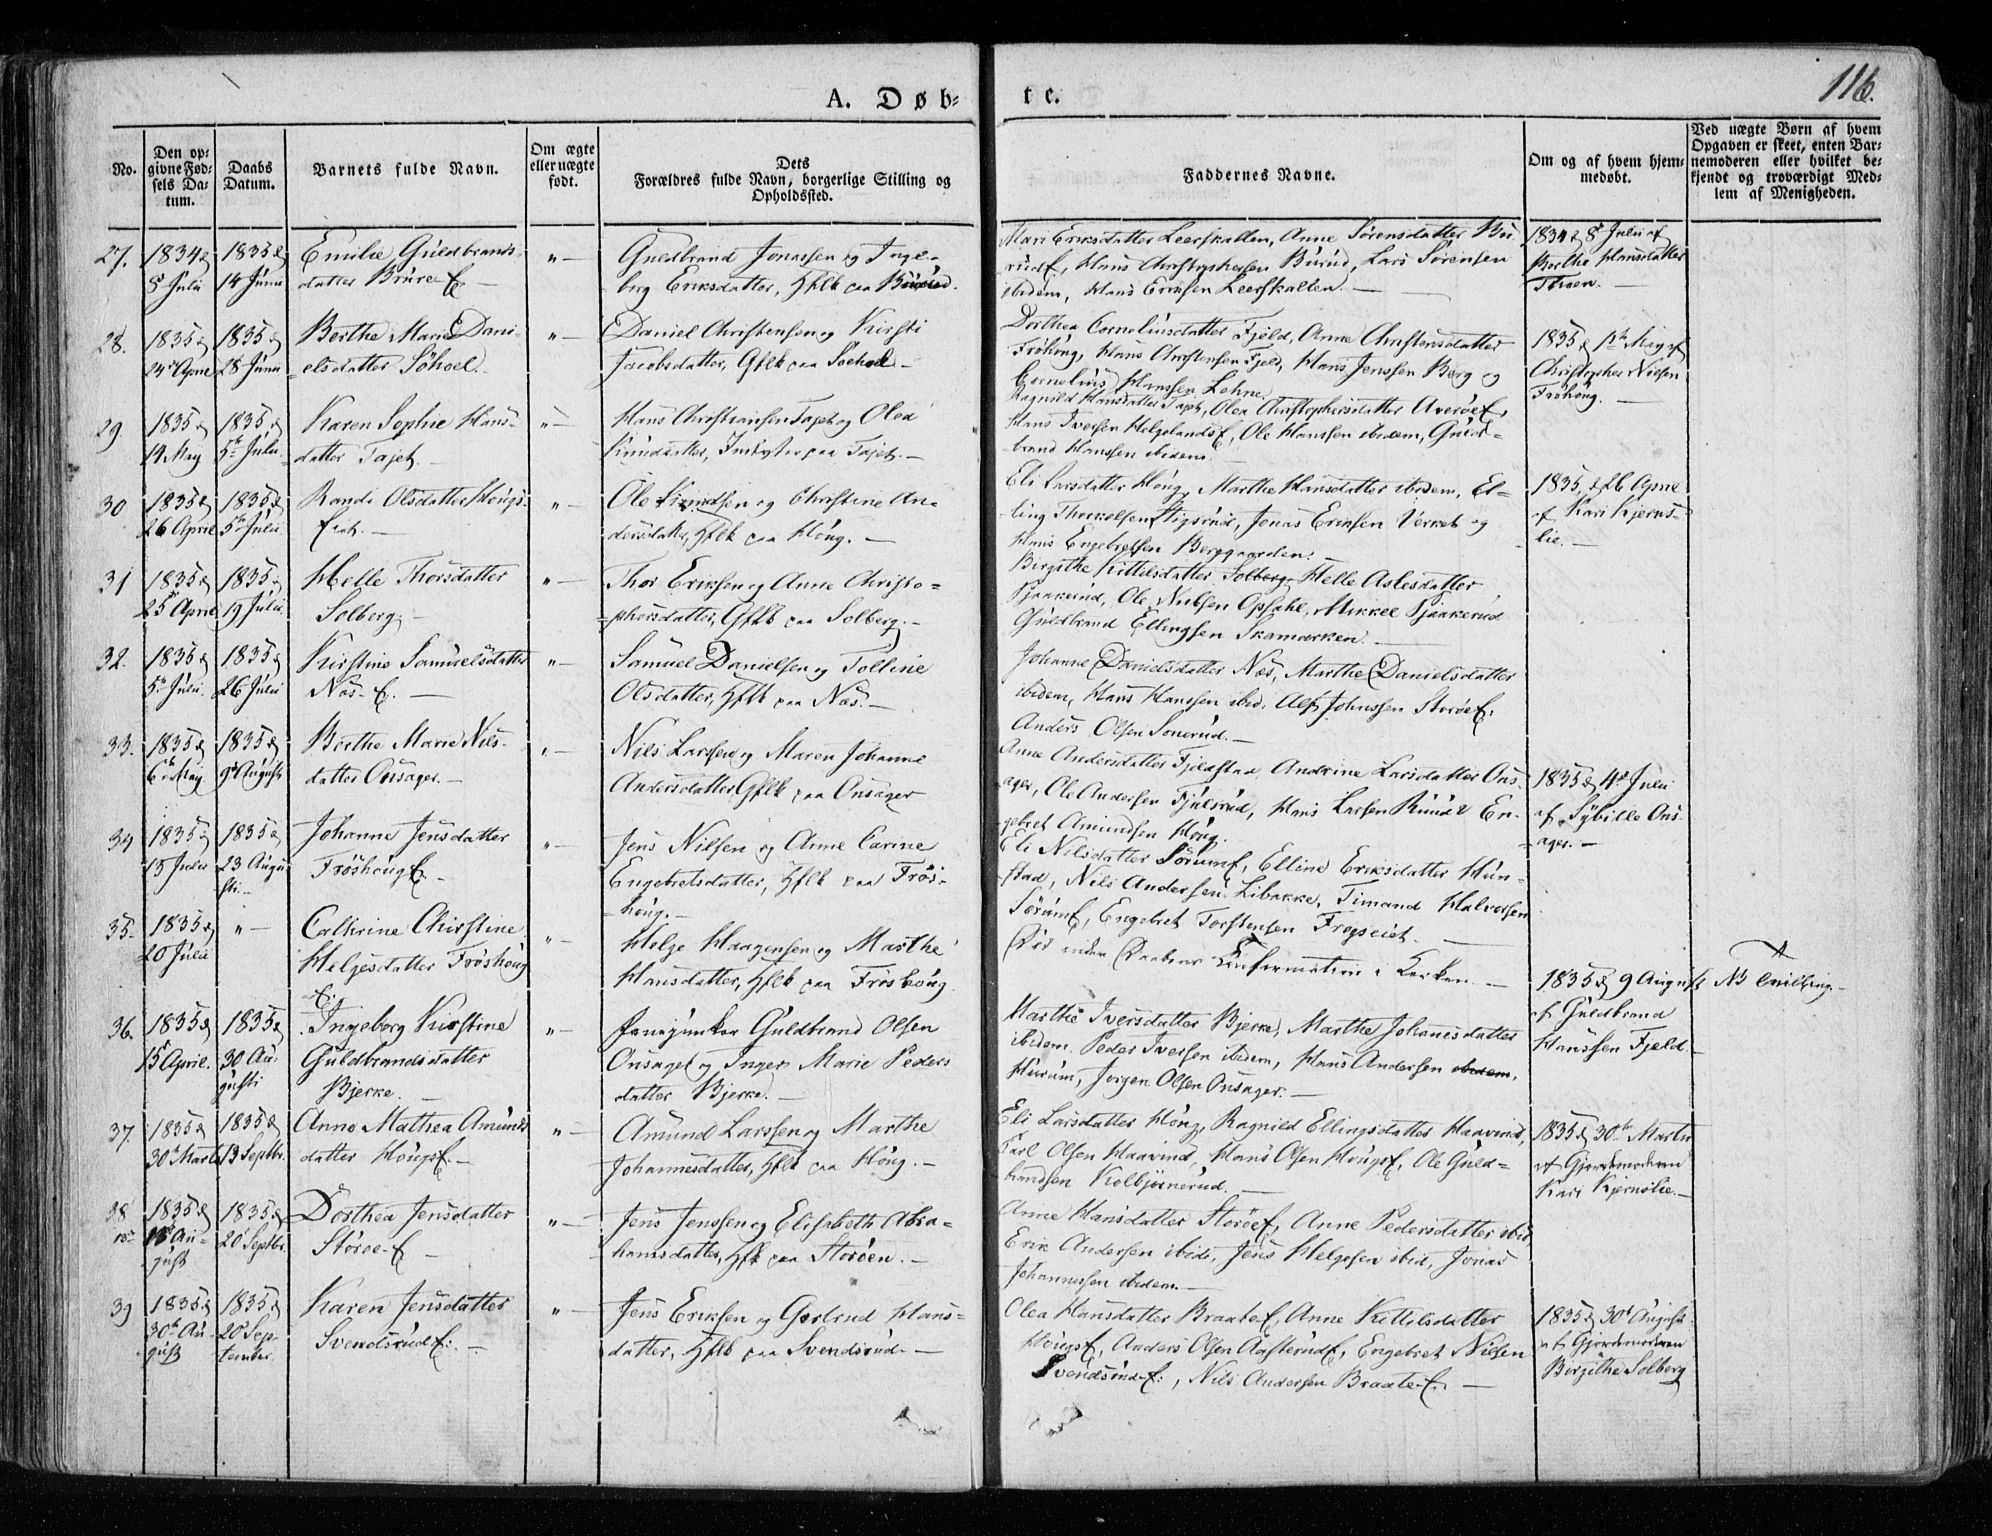 116.
A. Døb-
te.
No.
Den op-
givne Fød-
sels Da-
tum.
Daabs
Datum.
Barnets fulde Navn.
Om ægte
eller uægte
født.
Dets
Forældres fulde Navn, borgerlige Stilling og
Opholdssted.
Faddernes Navne.
Om og af hvem hjem-
medøbt.
Ved uægte Børn af hvem
Opgaven er skeet, enten Bar-
nemoderen eller hvilket be-
kjendt og troværdigt Med-
lem af Menigheden.
27.
1834 d
8 Julii
1835 d
14 Junii
Emilie Guldbrands-
datter
"—
Guldbrand Jonassen og Inge-
borg Eriksdatter, Hflk paa
Mari Eriksdatter Leerskallen, Anne Sörensdatter Bu-
rud, Hans Christophersen Burud, Lars Sörensen
ibidem, Hans Eriksen Leerskallen. —
1834 d 8 Julii af
Berthe Hansdatter
Thoen. —
28.
1835 d
24 April
1835 d
28 Junii
Berthe Marie Dani-
elsdatter Söhoel.
"—
Daniel Christensen og Kirsti
Jacobsdatter, Gflk paa Soehoel
Dorthea Corneliusdatter Fjeld, Anne Christensdatter
Fröhöug, Hans Christensen Fjeld, Hans Jenssen Berg og
Cornelius Hanssen Lohne.
1835 d May af
Christopher Nielsen
Fröhöug. —
29
1835 d
14 May
1835 d
5te Julii
Karen Sophie Hans-
datter Tajet. —
"—
Hans Christiansen Tajet og Olea
Knudsdatter, paa Tajet. —
Ragnild Hansdatter Tajet, Olea Christophersdatter Averöe
Hans Iversen Helgelands, Ole Hanssen ibidem, Guld-
brand Hanssen ibidem.
30
1835 d
26 April
1835 d
5te Julii
Randi Olsdatter Höugs-
"—
Ole Knudsen og Christine An-
dersdatter, Hflk paa Höug. —
Eli Larsdatter Höug, Marthe Hansdatter ibidem, El-
ling Thorkelsen Stigsrud, Jonas Eriksen Verket og
Hans Engebretsen Berggaarden. —
1835 d 26 April
af Kari Kjerns-
lie. —
31
1835 d
25 April
1835 d
19 Julii
Helle Thorsdatter
Solberg. —
"—
Thor Eriksen og Anne Christo-
phersdatter, Gflk paa Solberg. —
Birgithe Kittilsdatter Solberg, Helle Aslesdatter
Pjaakerud, Ole Nielsen Opsahl, Mikkel Pjaakerud
Guldbrand Ellingsen Skamarken. —
32.
1835 d
5te Julii
1835 d
26 Julii
Kirstine Samuelsdatter
Næs-E. —
"—
Samuel Danielsen og Tolline
Olsdatter, Hflk paa Næs. —
Johanne Danielsdatter Næs, Marthe Danielsdatter
ibidem, Hans Hanssen ibid. Alf Johnssen Storöe
Anders Olsen Sonerud. —
33.
1835 d
6te May
1835 d
9de Augusti
Berthe Marie Nils-
datter Onsager. —
"—
Nils Larssen og Maren Johanne
Andersdatter, Gflk paa Onsager
Anne Andersdatter Fjeldstad Andrine Larsdatter Ons-
ager, Ole Andersen Fjulsrud, Hans Larsen Ruud & En-
gebret Amundsen Höug.
1835 d 4de Julii
af Sybille Ons-
ager. —
34
1835 d
15 Julii
1835 d
23 Augu-
sti. —
Johanne Jensdatter
Fröshöug E. —
"—
Jens Nilsen og Anne Carine
Engebretsdatter, Hflk paa Frös-
höug. —
Eli Nilsdatter Sörum, Elline Eriksdatter Hun-
stad, Nils Andersen Libakke, Timand Halvorsen
Sörum, Engebret Torstensen Frogseiet.
35.
1835 d
20 Julii
"—
Cathrine Christine
Helgesdatter Fröshöug
E.
"—
Helge Haagensen og Marthe
Hansdatter, Hflk paa Fröshöug.
Död inden Daabens Confirmation i Kirken. —
1835 d 9 August
af Guldbrand
Hanssen Fjeld. —
36.
1835 d
15 April.
1835 d
30 Au-
gusti
Ingeborg Kirstine
Guldbrandsdatter
Bjerke. —
"—
Guldbrand Olsen
Onsaget og Inger Marie Peders
datter Bjerke. —
Marthe Iversdatter Bjerke, Marthe Johannesdatter
ibidem. Peder Iversen ibidem, Hans Andersen ibidem,
Hurum, Jörgen Olsen Onsager. —
37.
1835 d
30te Marts
1835 d
13 Septbr.
Anne Mathea Amunds
datter Höugs. —
"—
Amund Larssen og Marthe
Johannesdatter, Hflk paa Höug. —
Eli Larsdatter Höug, Ragnild Ellingsdatter Haavind,
Carl Olsen Haavind, Hans Olsen Höugs, Ole Guld-
brandsen Kolbjörnerud. —
1835 d 30te Martii
af Gjordemoderen
Kari Kjernslie. —
38
1835 d
Au-
gust
1835 d
20 Septbr.
Dorthea Jensdatter
Storöe-E —
"—
Jens Jenssen og Elisabeth Abra-
hamsdatter, Hflk paa Storöen. —
Anne Hansdatter Storöe, Anne Pedersdatter ibid
Erik Andersen ibid, Jens Helgesen ibid, Jonas
Johannessen ibidem. —
39
1835 d
30te Au-
gust
1835 d
20 Sep-
tember.
Karen Jensdatter
Svendsrud E. —
"—
Jens Eriksen og Gertrud Hans-
datter, Hflk paa Svendsrud. —
Olea Hansdatter Braate, Anne Kittilsdatter
Höugs, Anders Olsen Aasterud, Engebret Nilsen
Svendsrud, Nils Andersen Braate. —
1835 d 30te August
af Gjordemoderen
Birgithe Solberg